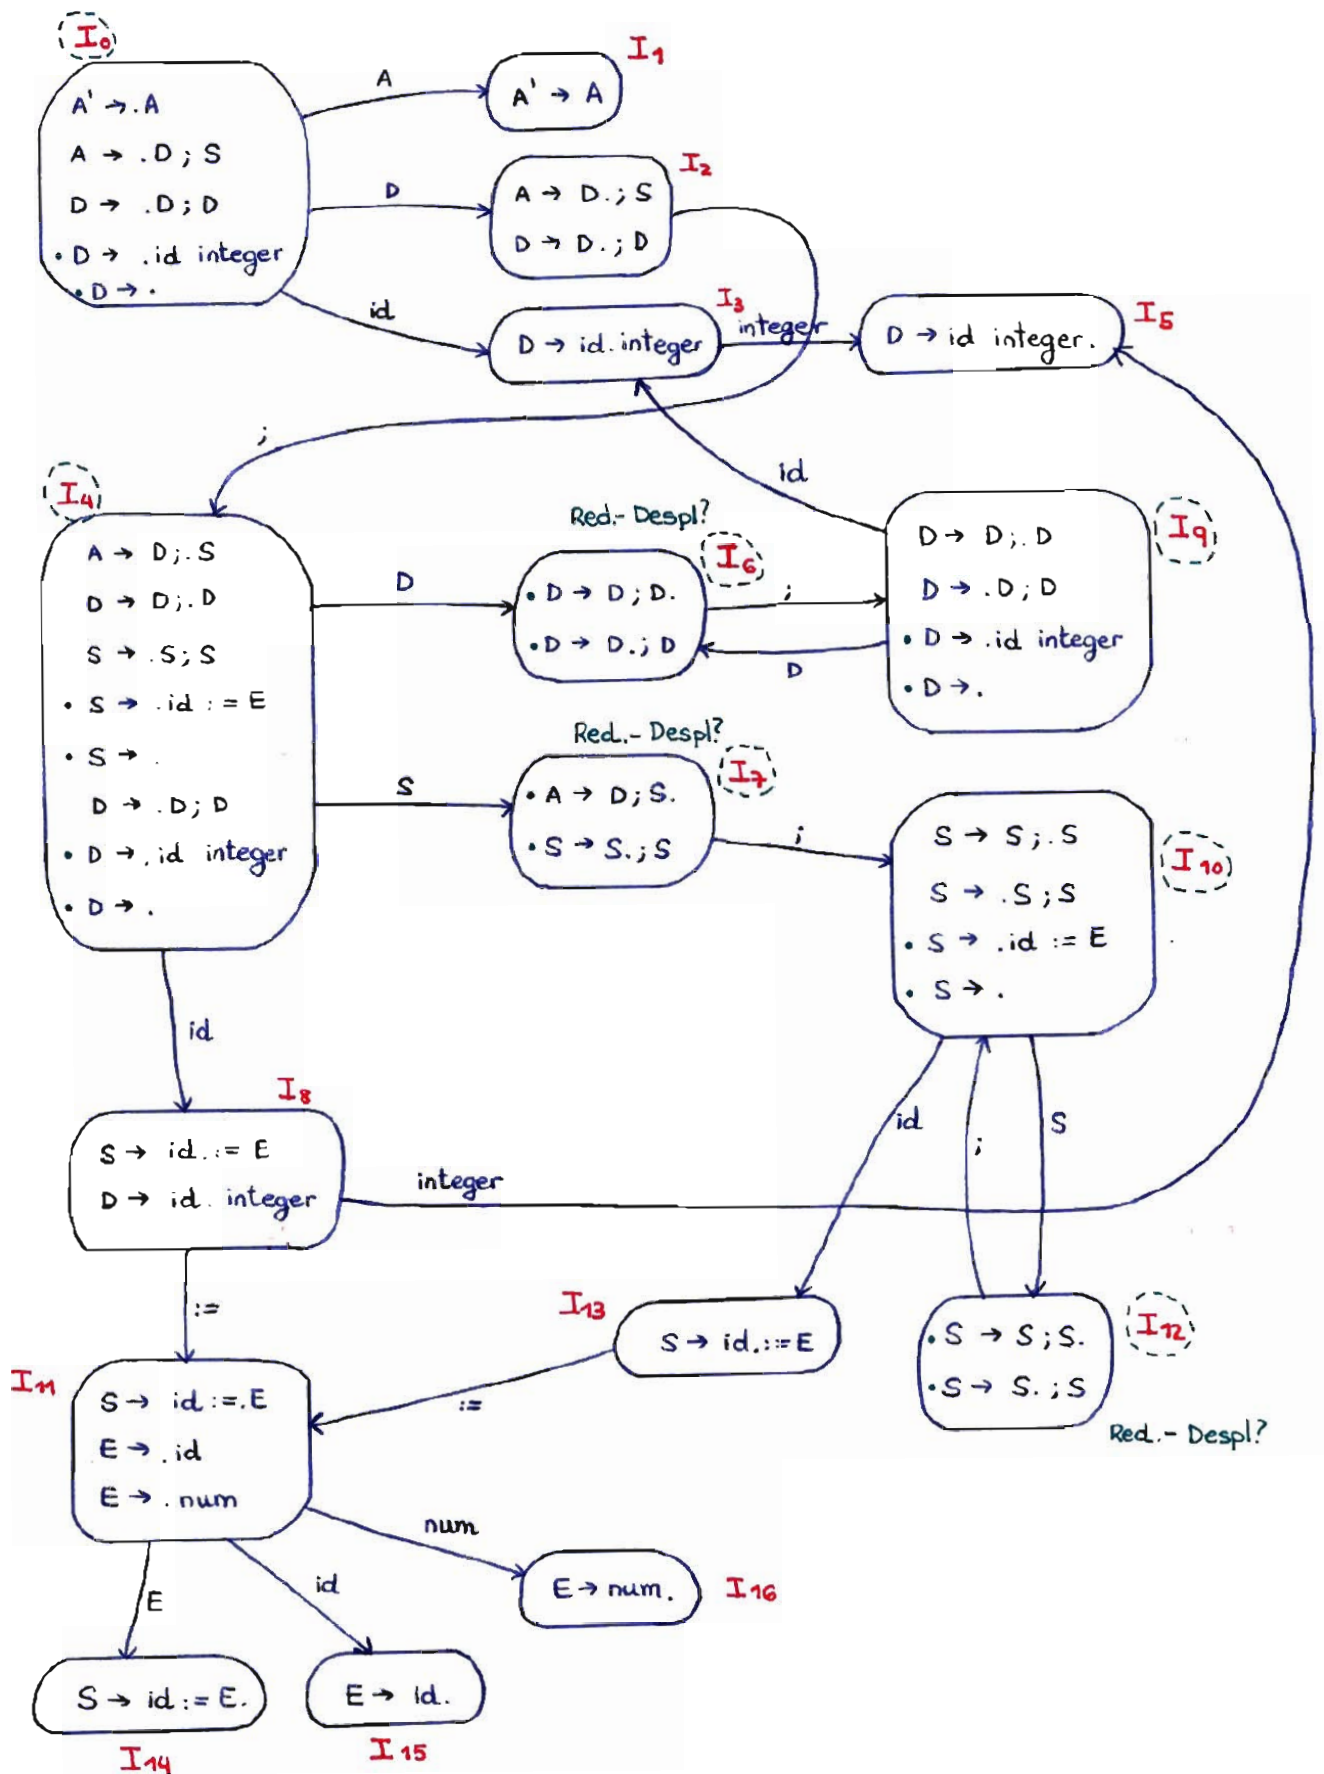 I0
A' → .A
A → .D ; S
D → .D ; D
• D → .id integer
• D → .
A
I1
A' → A
D
I2
A → D. ; S
D → D. ; D
id
I3
D → id. integer
integer
I5
D → id integer.
;
id
I4
A → D;. S
D → D;. D
S → .S; S
• S → .id := E
• S → .
D → .D; D
• D → .id integer
• D → .
D
Red.- Despl?
I6
• D → D ; D.
• D → D. ; D
;
D
I9
D → D;. D
D → .D ; D
• D → .id integer
• D → .
S
Red.- Despl?
I7
• A → D; S.
• S → S. ; S
;
I10
S → S;. S
S → .S ; S
• S → .id := E
• S → .
id
I8
S → id. := E
D → id. integer
integer
id
;
S
:=
I13
S → id. := E
:=
I12
• S → S; S.
• S → S. ; S
Red.- Despl?
I11
S → id :=. E
E → .id
E → .num
num
E → num.
I16
E
id
S → id := E.
I14
E → id.
I15